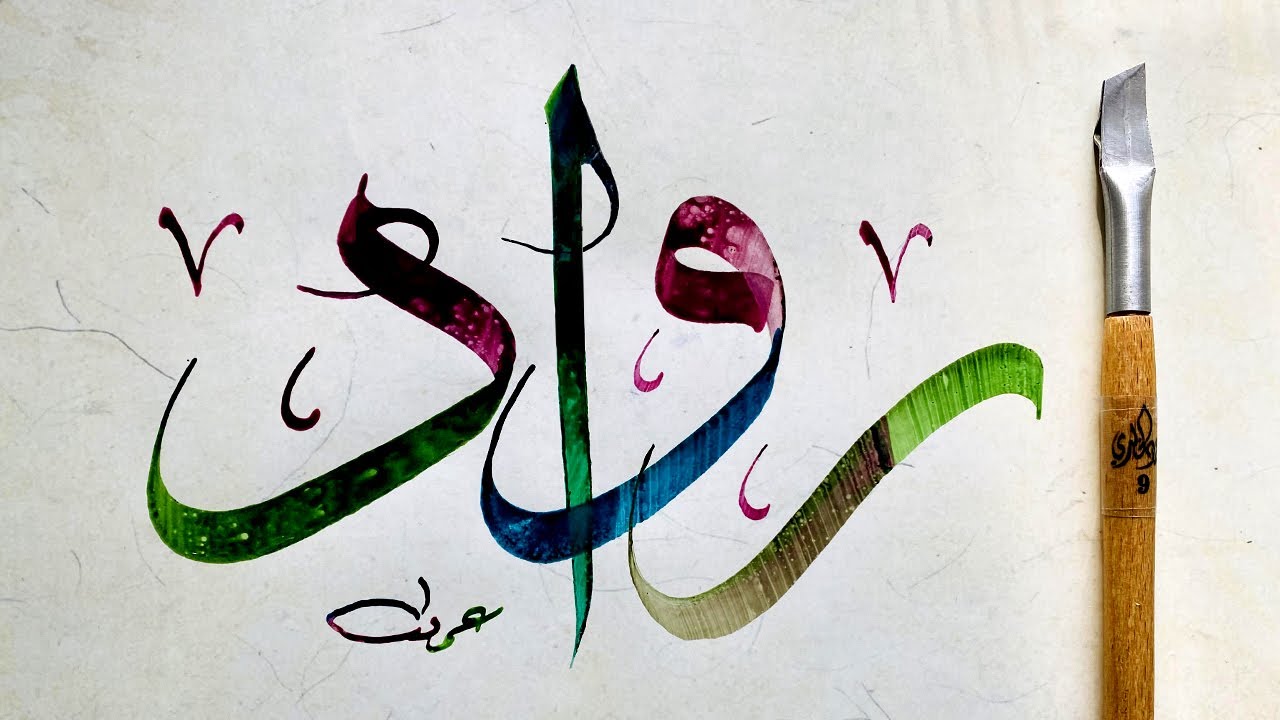 رواد
9